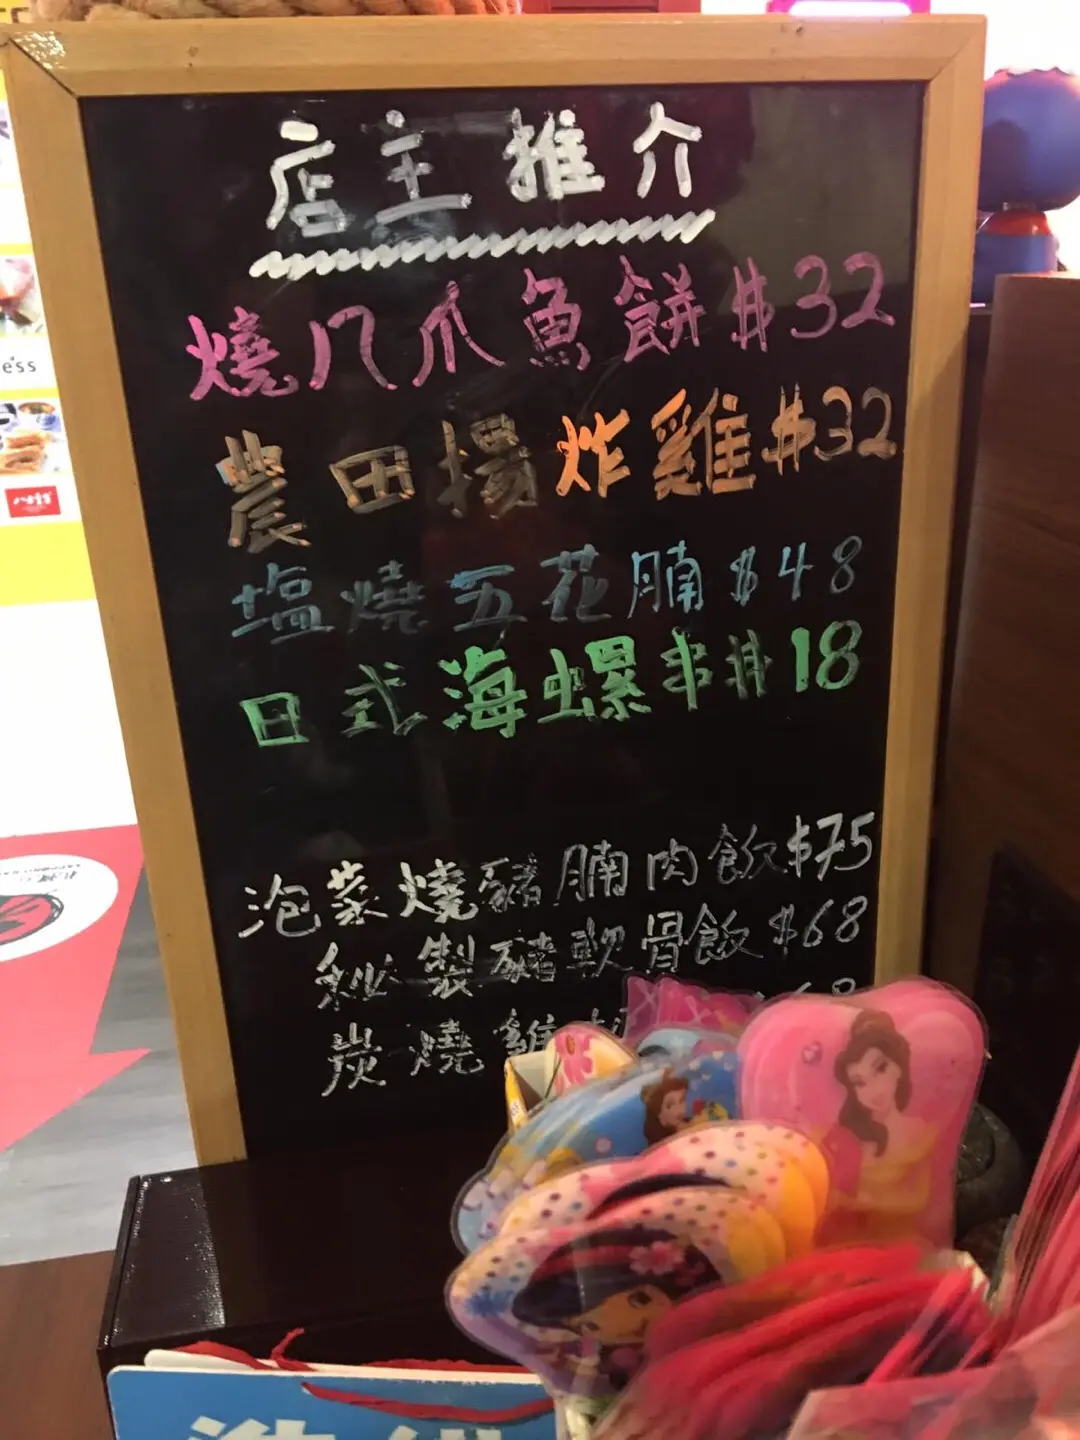 店主推介
燒八爪魚餅$32
農田場炸雞$32
塩燒五花腩$48
日式海螺串$18
泡菜燒豬腩肉飯$75
秘製豬軟骨飯$68
炭燒雞